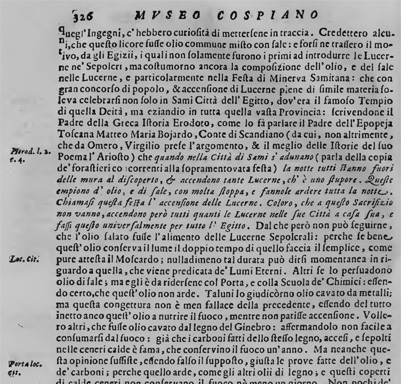 326 MVSEO COSPIANO
quegl'Ingegni, c'hebbero curiosità di mettersene in traccia. Credettero alcu-
ni, che questo licore fusse olio commune misto con sale: e forsi ne trassero il mo-
tivo, da gli Egizii, i quali non solamente furono i primi ad introdurre le Lucer-
ne ne' Sepolcri, ma costumorno ancora la composizione dell'olio, e del sale
nelle Lucerne, e particolarmente nella Festa di Minerva Samitana: che con
gran concorso di popolo, & accensione di Lucerne piene di simile materia so-
leva celebrarsi non solo in Sami Città dell'Egitto, dov'era il famoso Tempio
di quella Deità, ma eziandio in tutta quella vasta Provincia: scrivendone il
Padre della Greca Istoria Erodoto, come lo fà parlare il Padre dell'Epopeja
Toscana Matteo Maria Bojardo, Conte di Scandiano (da cui, non altrimente,
Herod. l. 2. che da Omero, Virgilio prese l'argomento, & il meglio delle Istorie del suo
c. 4. Poema l'Ariosto) che quando nella Città di Sami s'adunano (parla della copia
de' forastieri concorrenti alla sopramentovata festa) la notte tutti stanno fuori
delle mura al discoperto, & accendono tante Lucerne, ch'è uno stupore. Queste
empiono d'olio, e di sale, con molta stoppa, e fannole ardere tutta la notte.
Chiamasi questa festa l'accensione delle Lucerne. Coloro, che a questo Sacrifizio
non vanno, accendono però tutti quanti le Lucerne nelle sue Città a casa sua, e
fassi questo universalmente per tutto l'Egitto. Dal che però non può seguirne,
che l'olio salato fusse l'alimento delle Lucerne Sepolcrali: perche se bene
quest'olio conserva il lume il doppio tempo di quello faccia il semplice, come
Loc. cit. pure attesta il Moscardo; nulladimeno tal durata può dirsi momentanea in ri-
guardo a quella, che viene predicata de' Lumi Eterni. Altri se lo persuadono
olio di sale; ma egli è da ridersene col Porta, e colla Scuola de' Chimici: essen-
do certo, che quest'olio non arde. Taluni lo giudicòrno olio cavato da metalli;
ma questa congettura non è men fallace della precedente, essendo del tutto
inetto anco quest'olio a nutrire il fuoco, mentre non patisse accensione. Volle-
ro altri, che fusse olio cavato dal legno del Ginebro: affermandolo non facile a
consumarsi dal fuoco: già che i carboni fatti dello stesso legno, accesi, e sepolti
nelle ceneri calde è fama, che conservino il fuoco un'anno. Ma neanche que-
Porta loc. sta opinione sussiste, essendo falso il supposto, giusta le prove fatte dell'olio, e
cit. de' carboni; perche quello arde, come gli altri olii di legno; e questi coperti